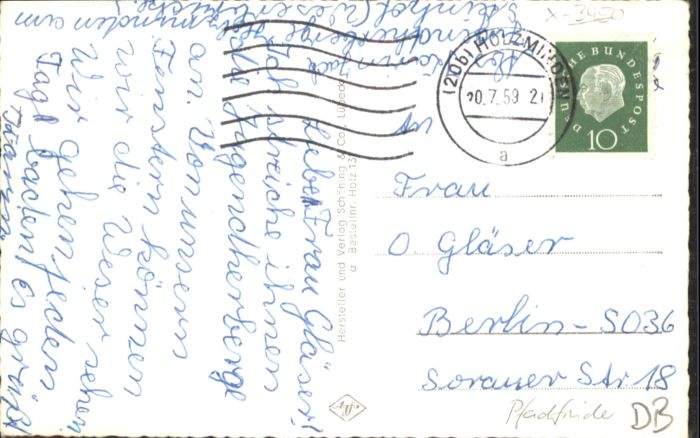 Holzminden am
Liebe Frau Gläser!
Ich streiche ihnen
die Jugendherberge
an. Von unsern
Fenstern können
wir die Weser sehen.
Wir gehen jeden
Tag baden. Es grüßt
Hersteller und Verlag Schöning & Co., Lübeck
a Bestellnr. Holz 13
(20b) HOLZMINDEN
20.7.59.-21
a
DEUTSCHE BUNDESPOST
10
X-3450
An
Frau
O. Gläser
Berlin-SO36
Sorauer Str 18
DB